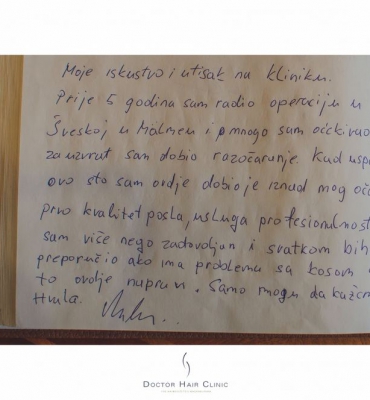 Moje iskustvo i utisak na kliniku.
Prije 5 godina sam radio operaciju u
Šveskoj u Malmeu i pmnogo sam očekivao
za uzvrat sam dobio razočaranje. Kud
ovo sto sam ovdje dobio je iznad mog
prvo kvalitet posla, usluga profesionalnost
sam više nego zadovoljan i svatkom bih
preporučio ako ima problema sa kosom
to ovdje napravi. Samo mogu da kažem
Hvala.
DOCTOR HAIR CLINIC